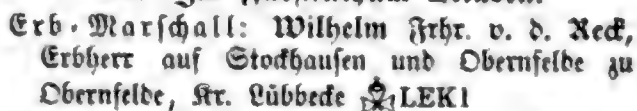 Erb-Marschall: Wilhelm Frhr. v. d. Reck,
Erbherr auf Stockhausen und Obernfelde zu
Obernfelde, Kr. Lübbecke LEK1